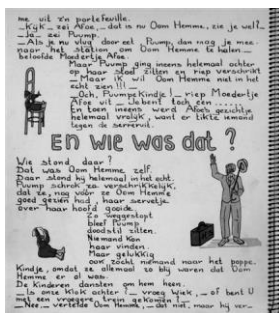 me uit z'n portefeuille.
- Kijk - zei Afoe, - dat is nu Oom Hemme, zie je wel? -
- Ja - zei Puump.
- Als je nu vlug door eet, Puump, dan mag je mee
naar het station om Oom Hemme te halen -
beloofde Moedertje Afoe.
Maar Puump ging ineens helemaal achter
op haar stoel zitten en riep verschrikt
- Maar ik wil Oom Hemme niet in het
echt zien!!! -
- Och, Puumpekindje! - riep Moedertje
Afoe uit - Jebent toch een ......
En toen ineens werd Afoe's gezichtje
helemaal vrolijk, want er tikte iemand
tegen de serreruit.
En wie was dat ?
Wie stond daar?
Dat was Oom Hemme zelf.
Daar stond hij helemaal in het echt.
Puump schrok zo verschrikkelijk,
dat ze, nog vóór ze Oom Hemme
goed gezien had, haar servetje
over haar hoofd gooide.
Zo weggestopt
bleef Puump
doodstil zitten.
Niemand kon
haar vinden.
Maar gelukkig
ook zocht niemand naar het poppe.
kindje, omdat ze allemaal zo blij waren dat Oom
Hemme er al was.
De kinderen dansten om hem heen.
- Is onze klok achter? - vroeg Wiek, - of bent U
met een vroegere trein gekomen? -
- Nee - vertelde Oom Hemme, - dat niet, maar hij ver-